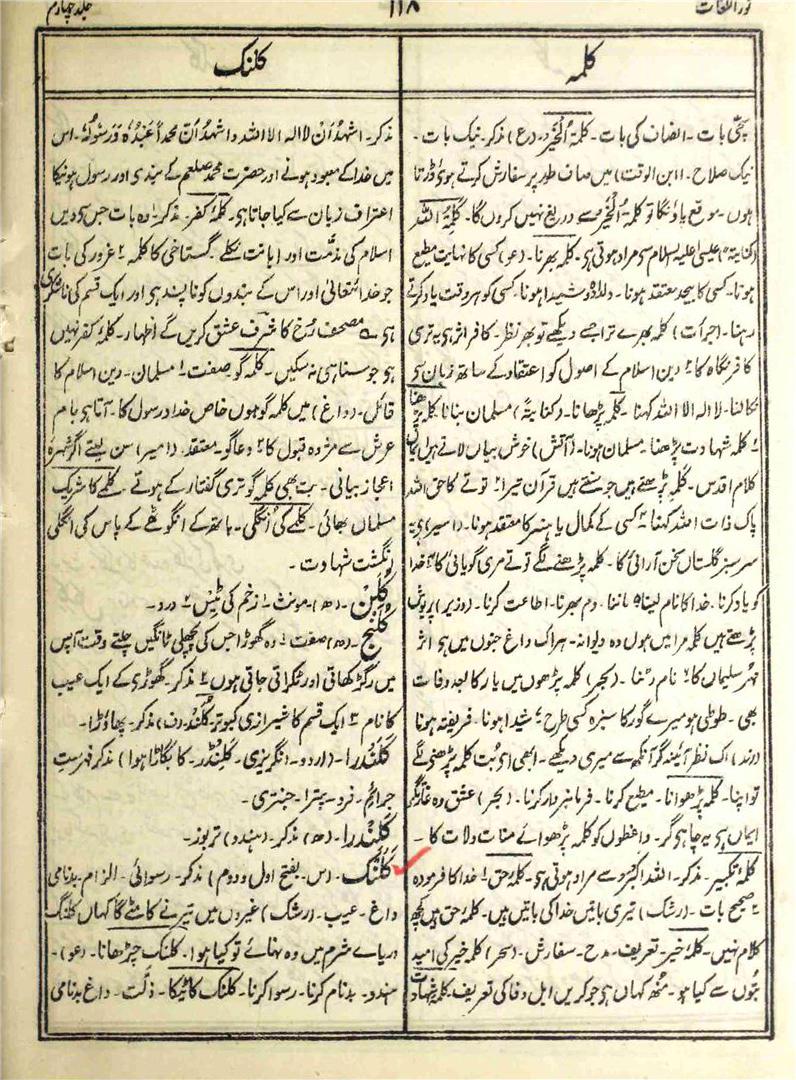 نور اللغات
۱۱۸
جلد چہارم
کلمہ
کلنک
سچّی بات ۔ انصاف کی بات ۔ کلمۃُ الخیر ۔ (ع) مذکر ۔ نیک بات ۔
نیک صلاح ۔ (ابن الوقت) میں صاف طور پر سفارش کرتے ہوئے ڈرتا
ہوں ۔ موقع پاؤنگا تو کلمۃُ الخیر سے دریغ نہیں کروں گا ۔ کلمۃُ اللہ
(کنایۃً) عیسیٰ علیہ السلام سے مراد ہوتی ہی ۔ کلمہ بھرنا ۔ (عو) کسی کا نہایت مطیع
ہونا ۔ کسی کا بیحد معتقد ہونا ۔ دلدادہ و شیدا ہونا ۔ کسی کو ہر وقت یاد کرتے
رہنا ۔ (جرأت) کلمہ بھرے ترا جسے دیکھے تو بھر نظر ۔ کافر اثر ہی یہ تری
کافر نگاہ کا ۲ دین اسلام کے اصول کو اعتقاد کے ساتھ زبان سی
نکالنا ۔ لا الہ الا اللہ کہنا ۔ کلمہ پڑھانا ۔ (کنایۃً) مسلمان بنانا کلمہ پڑھنا
۱ کلمہ شہادت پڑھنا ۔ مسلمان ہونا ۔ (آتش) خوش بیاں لاتے ہیں ایماں
کلام اقدس ۔ کلمہ پڑھتے ہیں جو سنتے ہیں قرآن تیرا ۲ توتے کا حق اللہ
پاک ذات اللہ کہنا ۳ کسی کے کمال یا ہنر کا معتقد ہونا ۔ (اسیر) ہی یہ
سرسبز گلستاں سخن آرائی کا ۔ کلمہ پڑھنے لگے توتے مری گویائی کا ۴ خدا
کو یاد کرنا ۔ خدا کا نام لینا ۵ ماننا ۔ دم بھرنا ۔ اطاعت کرنا ۔ (وزیر) پریوش
پڑھتے ہیں کلمہ مرا میں ہوں وہ دیوانہ ۔ ہر اک داغ جنوں میں ہی اثر
مہر سلیماں کا ۶ نام رٹنا ۔ (بحر) کلمہ پڑھوں میں یار کا بعد وفات
بھی ۔ طوطی ہو میرے گور کا سبزہ کسی طرح ۷ شیدا ہونا ۔ فریفتہ ہونا
(رند) اک نظر آئینہ گر آنکھ سے میری دیکھے ۔ ابھی ای بت کلمہ پڑھنے لگے
تو اپنا ۔ کلمہ پڑھوانا ۔ مطیع کرنا ۔ فرمانبردار کرنا ۔ (بحر) عشق وہ غارتگر
ایماں ہی یہ چاہی گر ۔ واعظوں کو کلمہ پڑھوائے منات و لات کا ۔
کلمۂ تکبیر ۔ مذکر ۔ اللہ اکبر سے مراد ہوتی ہی ۔ کلمۂ حق ۱ خدا کا فرمودہ
۲ صحیح بات ۔ (رشک) تیری باتیں خدا کی باتیں ہیں ۔ کلمۂ حق ہیں کچھ
کلام نہیں ۔ کلمۂ خیر ۔ تعریف ۔ مدح ۔ سفارش ۔ (سحر) کلمۂ خیر کی امید
بتوں سے کیا ہو ۔ منھ کہاں ہی جو کریں اہل وفا کی تعریف ۔ کلمۂ شہادت
مذکر ۔ اشہدُ اَنْ لا الہ الا اللہ و اشہدُ اَنّ محمداً عبدُہٗ وَرَسُولُہٗ ۔ اس
میں خدا کے معبود ہونے اور حضرت محمد صلعم کے بندی اور رسول ہونیکا
اعتراف زبان سے کیا جاتا ہی ۔ کلمۂ کفر ۔ مذکر ۱ وہ بات جس سی دین
اسلام کی مذمّت اور اہانت نکلے ۔ گستاخی کا کلمہ ۲ غرور کی بات
جو خدا تعالیٰ اور اس کے بندوں کو ناپسند ہی اور ایک قسم کی ناشکری
ہی ؎ مصحف رخ کا شرفؔ عشق کریں گے اظہار ۔ کلمۂ کفر نہیں
ہی جو سنا ہی نہ سکیں ۔ کلمہ گو ۔ صفت ۱ مسلمان ۔ دین اسلام کا
قائل ۔ (داغ) میں کلمہ گو ہوں خاص خدا و رسول کا ۔ آتا ہی بام
عرش سے مژدہ قبول کا ۲ دعاگو ۔ معتقد ۔ (امیر) سن لیتے اگر شہرہ
اعجاز بیانی ۔ بت بھی کلمہ گو تری گفتار کے ہوتے ۔ کلمے کا شریک
مسلمان بھائی ۔ کلمے کی اُنگلی ۔ ہاتھ کے انگوٹھے کے پاس کی انگلی
انگشت شہادت ۔
کُلَن ۔ (ھ) ۔ مونث ۱ زخم کی ٹیس ۲ درد ۔
کُلَنج ۔ (ھ) صفت ۱ وہ گھوڑا جس کی پچھلی ٹانگیں چلتے وقت آپس
میں رگڑ کھاتی اور ٹکراتی جاتی ہوں ۲ مذکر ۔ گھوڑی کے ایک عیب
کا نام ۳ ایک قسم کا شیرازی کبوتر ۔ کُلَند (ف) مذکر ۔ پھاؤڑا ۔
کَلَنْدرا ۔ (اردو ۔ انگریزی ۔ کلِنڈر ۔ کا بگاڑا ہوا) مذکر فہرست
جرائم ۔ فرد ۔ پترا ۔ جنتری ۔
کَلَنْدرا ۔ (ھ) مذکر ۔ (ہندو) تربوز ۔
کَلَنْک ۔ (س ۔ بفتح اول و دوم) مذکر ۔ رسوائی ۔ الزام ۔ بدنامی
داغ ۔ عیب ۔ (رشک) غیروں میں تیرنے کا مٹے گا کہاں کلنک
دریاے شرم میں وہ نہائے تو کیا ہوا ۔ کلنک چڑھانا ۔ (عو) ۔
ہندو ۔ بدنام کرنا ۔ رسوا کرنا ۔ کلنک کا ٹیکا ۔ ذلّت ۔ داغ بدنامی